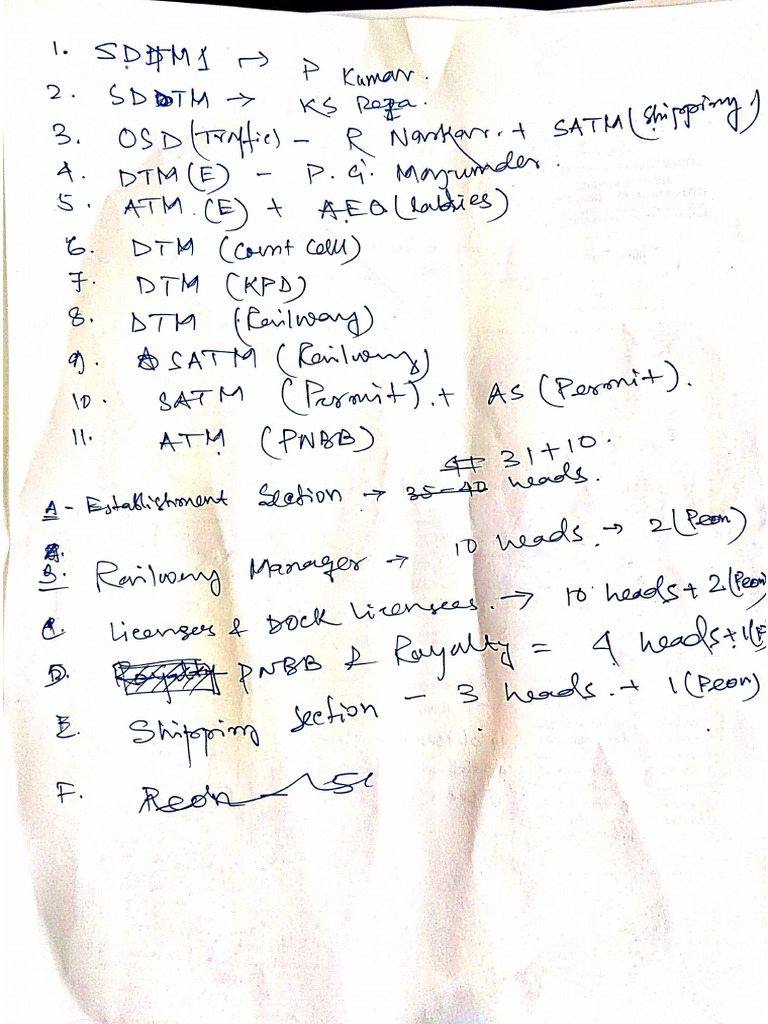 1. SDDTM1 → P Kumar.
2. SDDTM → KS Reza.
3. OSD (Traffic) - R Naskar. + SATM (Shipping)
4. DTM (E) - P. G. Mazumder.
5. ATM (E) + AEO
6. DTM (Count Cell)
7. DTM (KPD)
8. DTM (Railway)
9) SATM (Railway)
10. SATM (Permit). + AS (Permit).
11. ATM (PNBB)
31+10.
A - Establishment Section → 35-40 heads.
B. Railway Manager → 10 heads. → 2 (Peon)
C. Licenses & Dock licensees. → 10 heads + 2 (Peon)
D. PNBB & Royalty = 4 heads + 1 (P
E. Shipping Section - 3 heads. + 1 (Peon)
F.